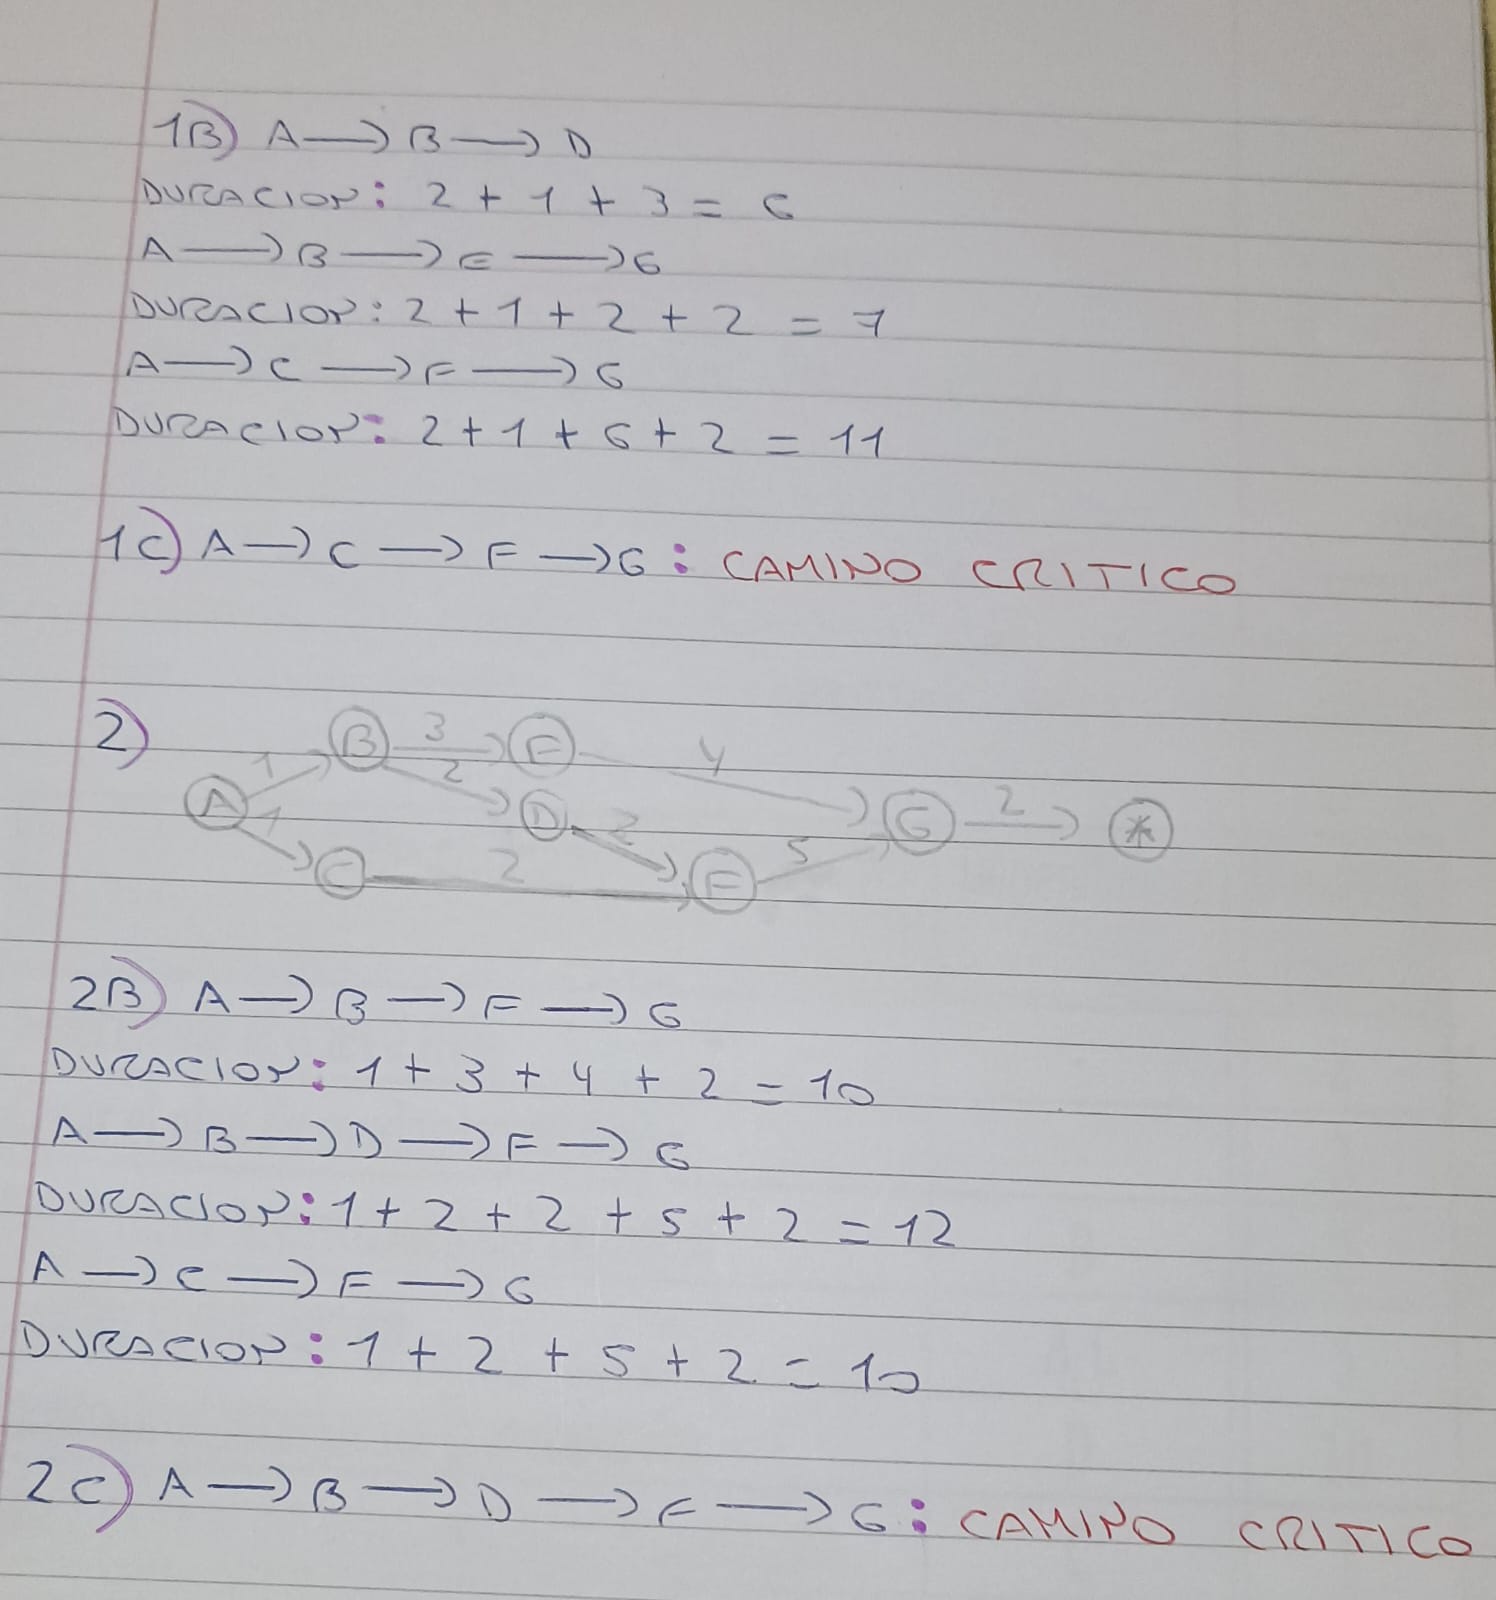 1B) A → B → D
DURACION: 2 + 1 + 3 = 6
A → B → E → G
DURACION: 2 + 1 + 2 + 2 = 7
A → C → F → G
DURACION: 2 + 1 + 6 + 2 = 11
1C) A → C → F → G: CAMINO CRITICO
2)
B 3 E 4
1 2
A D G 2 *
1 2 5
C 2 F
2B) A → B → F → G
DURACION: 1 + 3 + 4 + 2 = 10
A → B → D → F → G
DURACION: 1 + 2 + 2 + 5 + 2 = 12
A → C → F → G
DURACION: 1 + 2 + 5 + 2 = 10
2C) A → B → D → F → G: CAMINO CRITICO